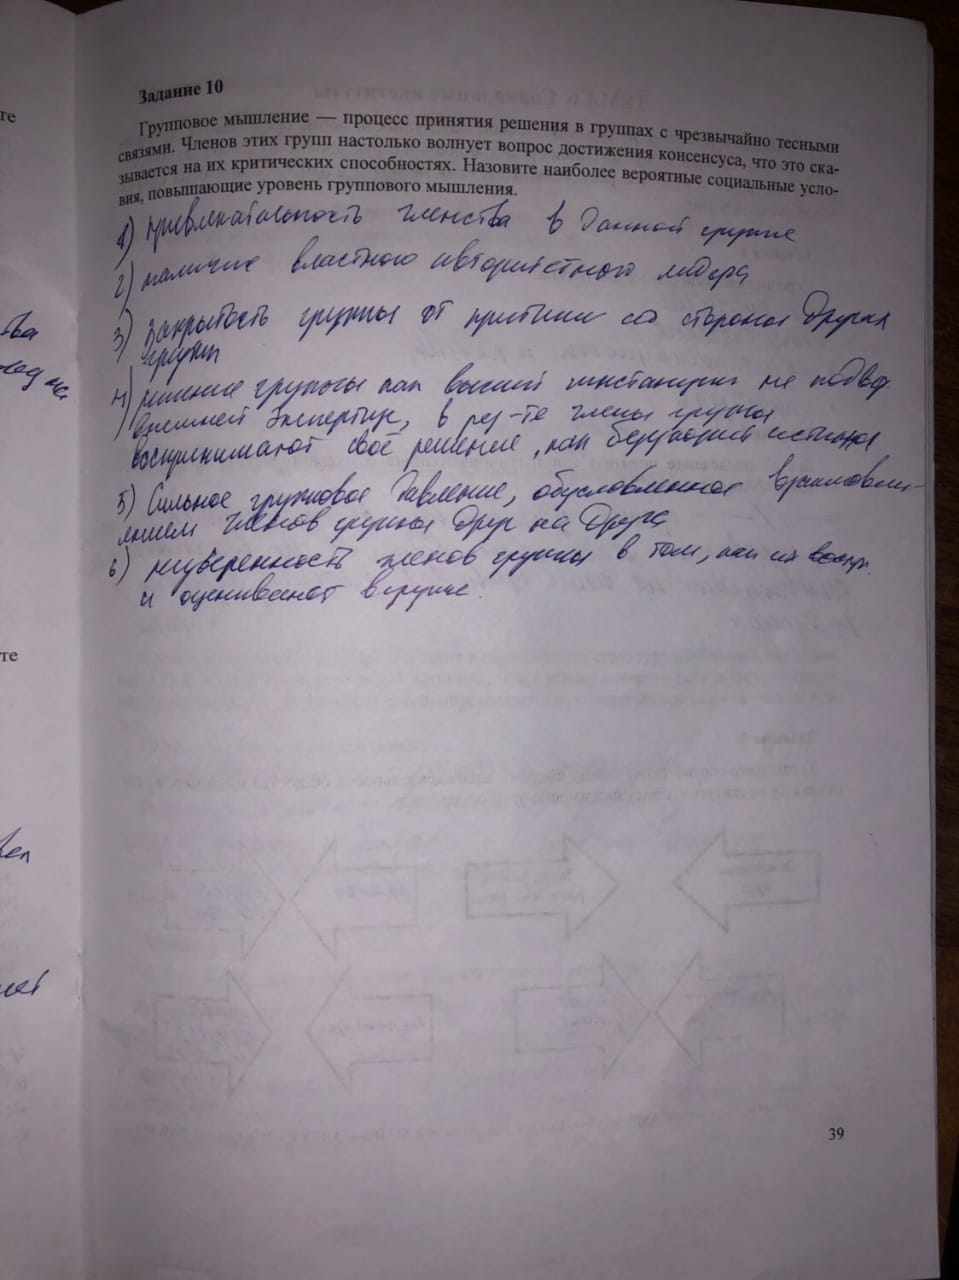 Задание 10
Групповое мышление — процесс принятия решения в группах с чрезвычайно тесными
связями. Членов этих групп настолько волнует вопрос достижения консенсуса, что это ска-
зывается на их критических способностях. Назовите наиболее вероятные социальные усло-
вия, повышающие уровень группового мышления.
1) привлекательность членства в данной группе
2) наличие властного авторитетного лидера
3) закрытость группы от критики со стороны других
групп
4) решение группы как высшей инстанции не подвер.
внешней экспертизе, в рез-те члены группы
воспринимают своё решение, как
5) Сильное групповое давление, обусловленное
членов группы друг на друга
6) неуверенность членов группы в том, как их воспр.
и оценивают в группе.
те
те
39